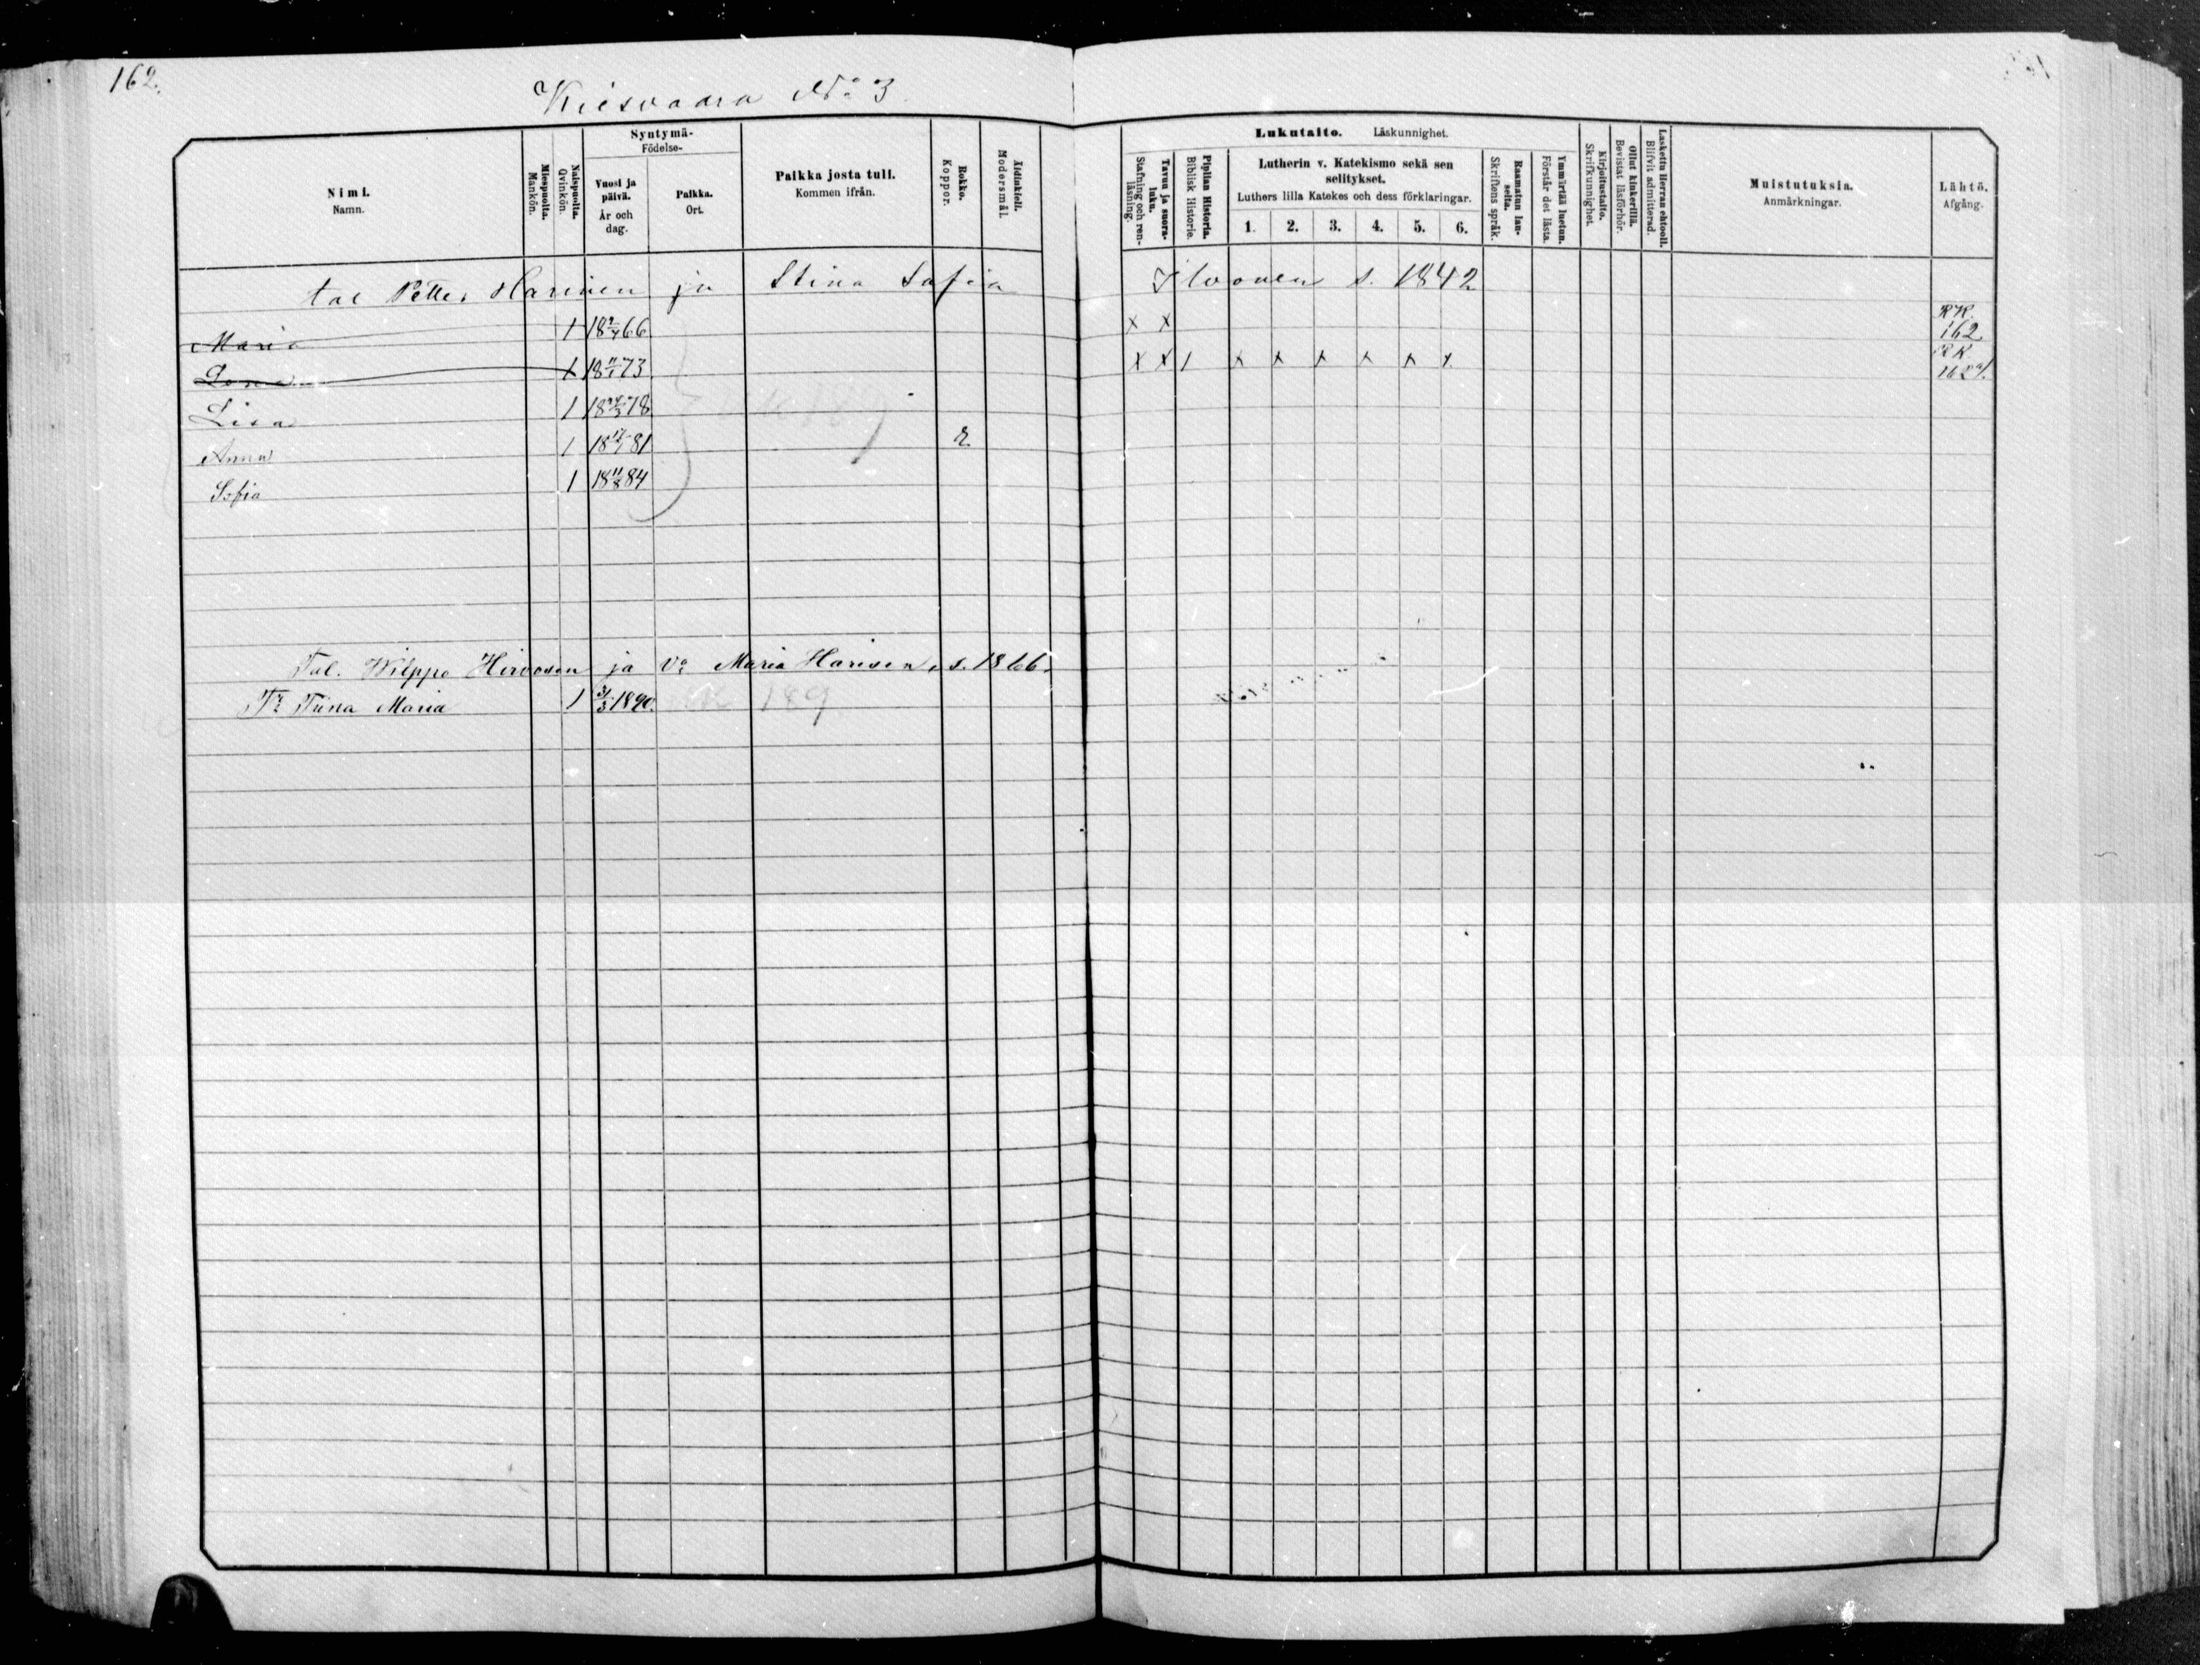 162.
Kiesvaara No 3
Nimi.
Namn.
Miespuolta.
Mankön.
Naispuolta.
Qvinkön.
Syntymä-
Födelse-
Vuosi ja
päivä.
År och
dag.
Paikka.
Ort.
Paikka josta tuli.
Kommen ifrån.
Rokko.
Koppor.
Äidinkieli.
Modersmål.
Lukutaito. Läskunnighet.
Tavuu ja suora-
luku.
Stafning och ren-
läsning.
Piplian Historia.
Biblisk Historie.
Lutherin v. Katekismo sekä sen
selitykset.
Luthers lilla Katekes och dess förklaringar.
1. 2. 3. 4. 5. 6.
Raamatun lau-
seita.
Skriftens språk.
Ymmärtää luetun.
Förstår det lästa.
Kirjoitustaito.
Skrifkunnighet.
Ollut kinkerillä.
Bevistat läsförhör.
Laskettu Herran ehtooll.
Blifvit admitterad.
Muistutuksia.
Anmärkningar.
Lähtö.
Afgång.
tal Petter Harinen ja Stina Sofia Ilvonen s. 1842
Maria 1 18 2/4 66 x x RK. 162
1 18 11/1 73 x x 1 x x x x x x RK 162
Lisa 1 18 78
Anna 1 18 81 r
Sofia 1 18 11/8 84
Tal. Wilppo Hirvosen ja Vo Maria Harisen, s. 1866.
Tr Tiina Maria 1 31/3 1890. 189